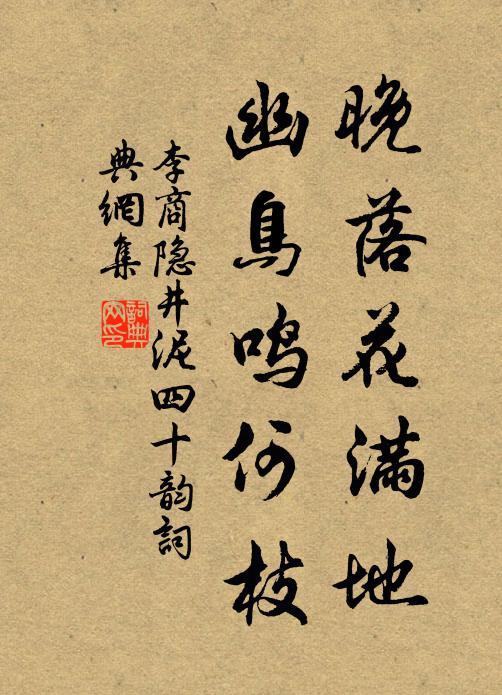 晚落花满地
幽鳥鸣何枝
李商隐井泥四十韵詞
典網集
詞典
网印